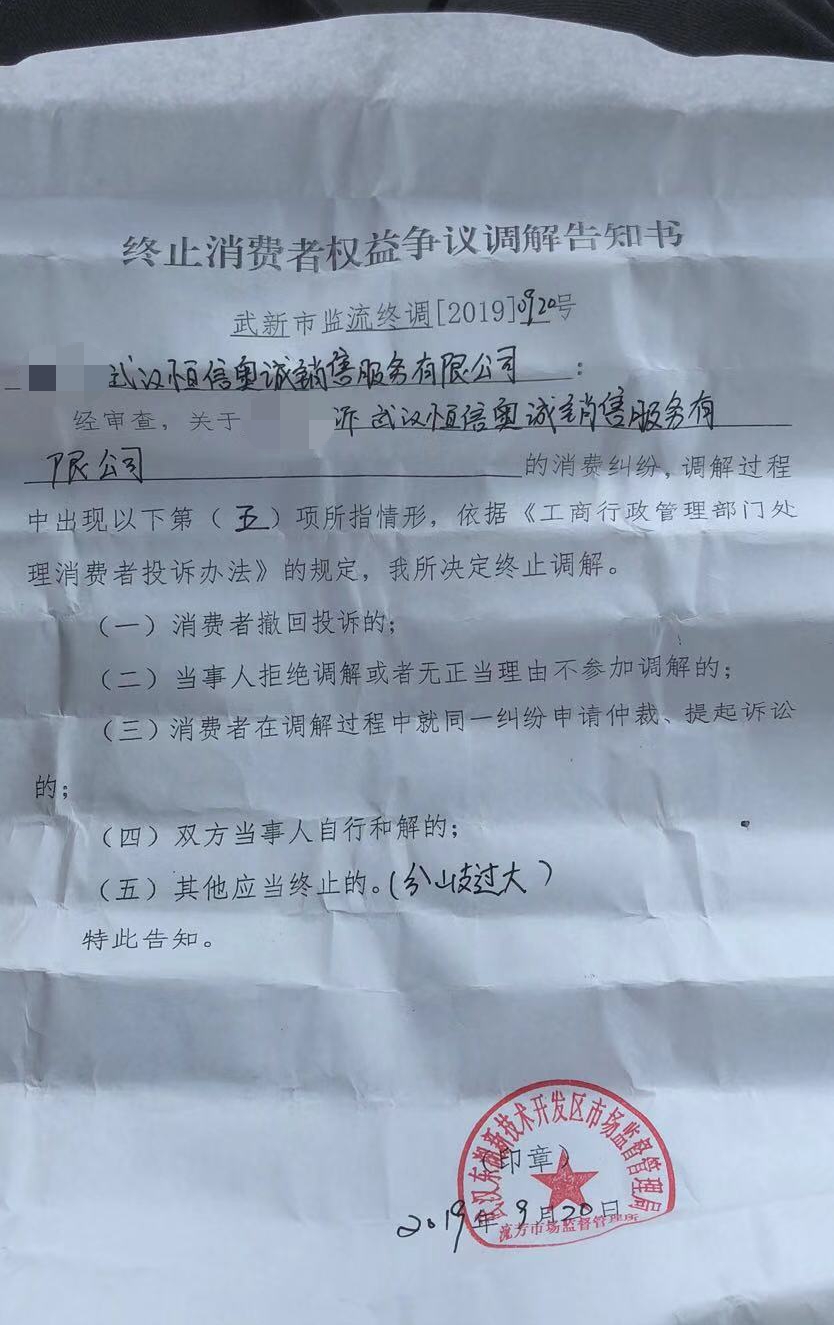 终止消费者权益争议调解告知书
武新市监流终调[2019]0920号
武汉恒信奥诚销售服务有限公司：
经审查，关于 诉武汉恒信奥诚销售服务有
限公司 的消费纠纷，调解过程
中出现以下第（五）项所指情形，依据《工商行政管理部门处
理消费者投诉办法》的规定，我所决定终止调解。
（一）消费者撤回投诉的；
（二）当事人拒绝调解或者无正当理由不参加调解的；
（三）消费者在调解过程中就同一纠纷申请仲裁、提起诉讼
的；
（四）双方当事人自行和解的；
（五）其他应当终止的。（分歧过大）
特此告知。
武汉东湖新技术开发区市场监督管理局
（印章）
2019年9月20日
流芳市场监督管理所